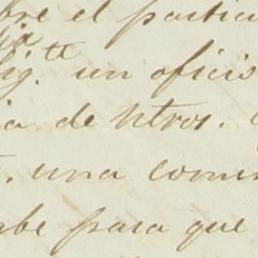 bre el particu
sig.te un oficio
ia de Ntros.
una comu
abe para que